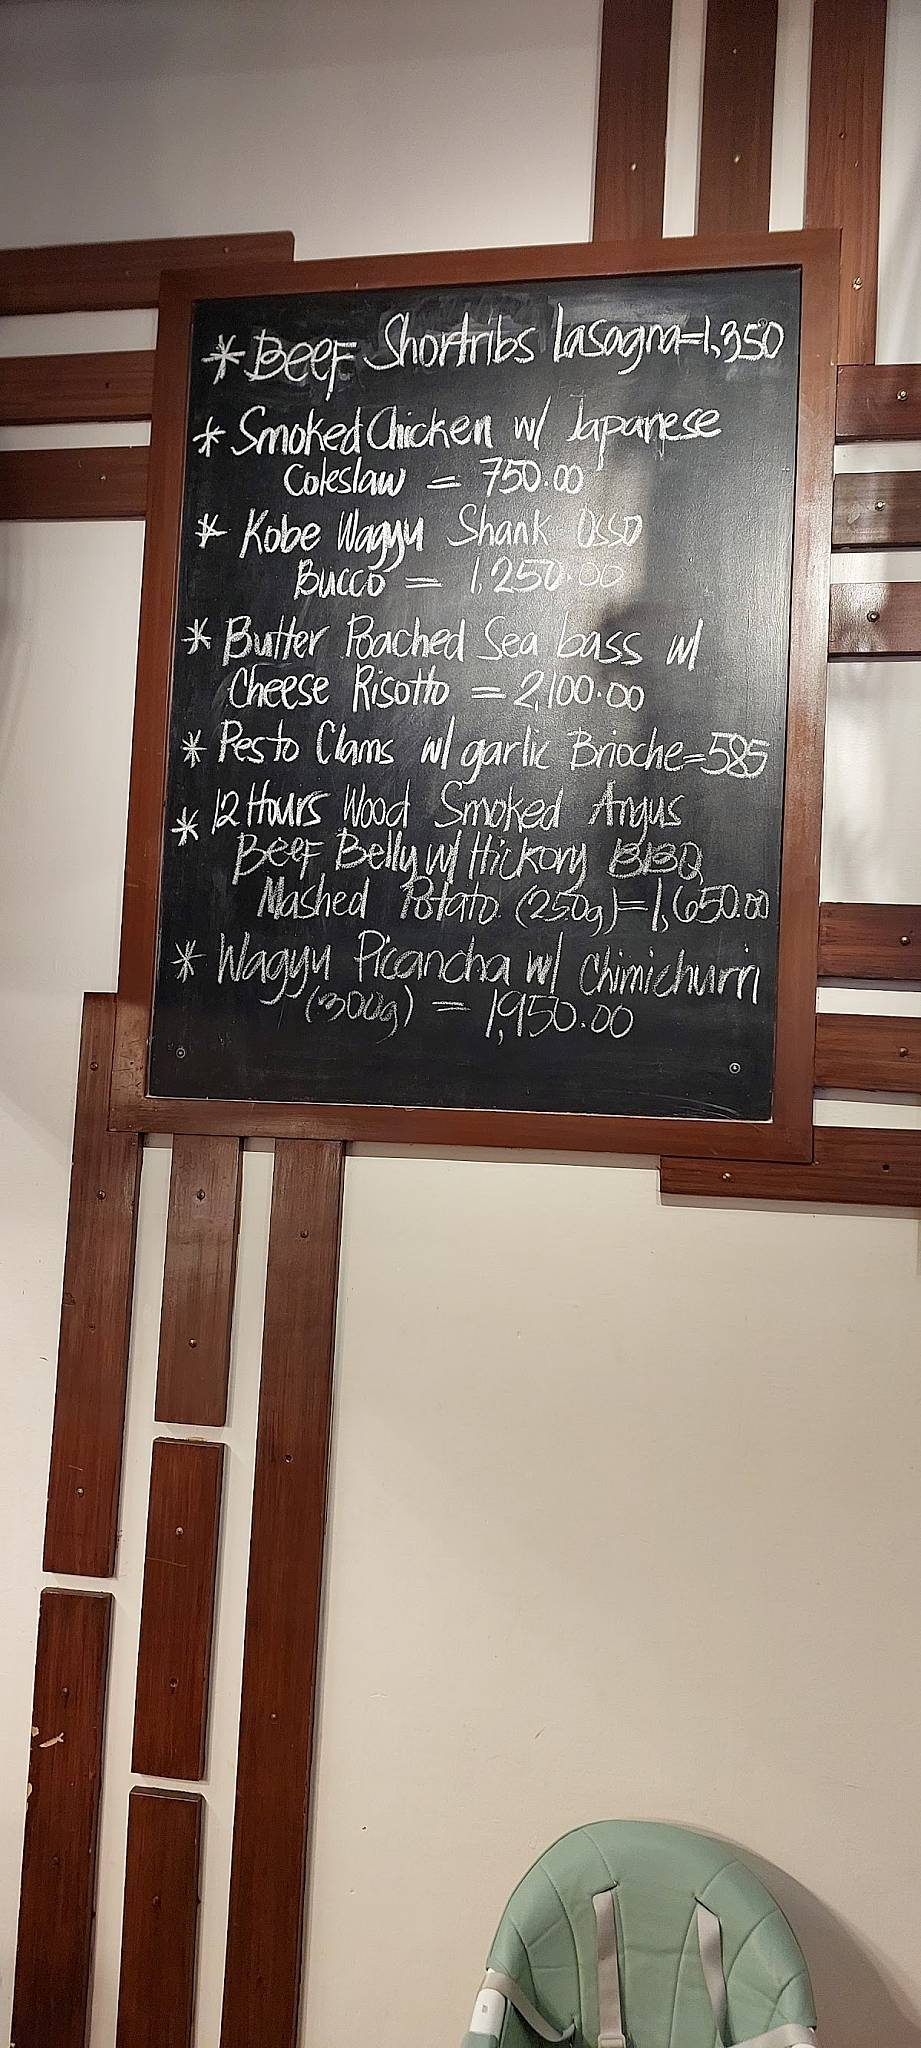 * Beef Shortribs Lasagna=1,350
* Smoked Chicken w/ Japanese
Coleslaw = 750.00
* Kobe Wagyu Shank Osso
Bucco = 1,250.00
* Butter Poached Sea bass w/
Cheese Risotto = 2,100.00
* Pesto Clams w/ garlic Brioche=585
* 12 Hours Wood Smoked Angus
Beef Belly w/ Hickory BBQ
Mashed Potato (250g)=1,650.00
* Wagyu Picancha w/ Chimichurri
(300g) = 1,950.00